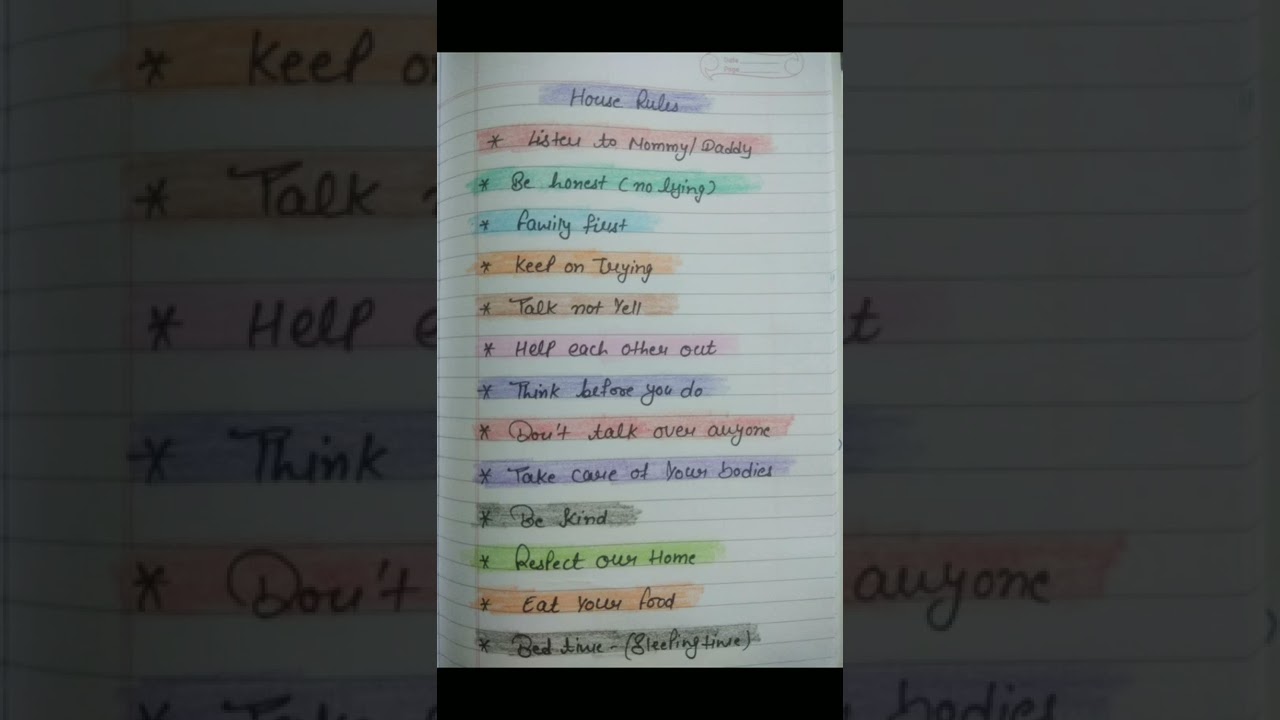 Date
Page
House Rules
* Listen to Mommy/Daddy
* Be honest (no lying)
* Family first
* Keep on Trying
* Talk not Yell
* Help each other out
* Think before you do
* Don't talk over anyone
* Take care of Your bodies
* Be Kind
* Respect our Home
* Eat Your food
* Bed time - (Sleeping time)